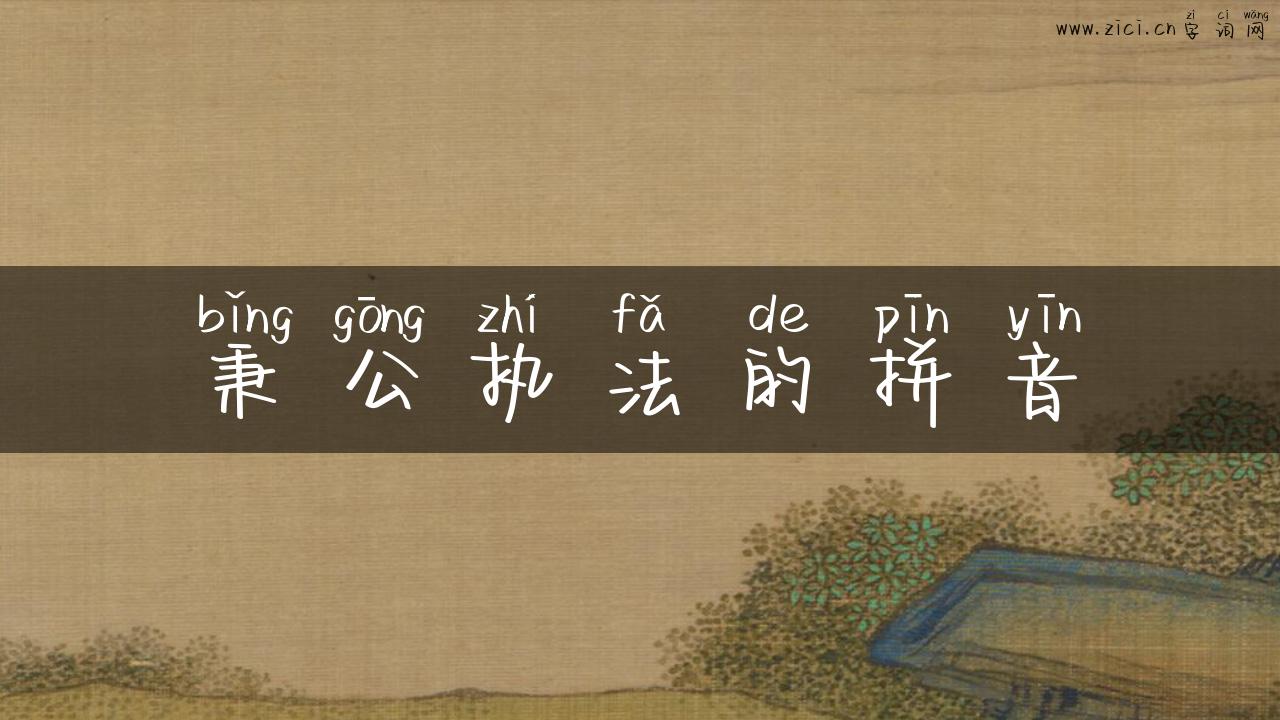 zì cí wǎng
www.zici.cn字词网
bǐng gōng zhí fǎ de pīn yīn
秉公执法的拼音